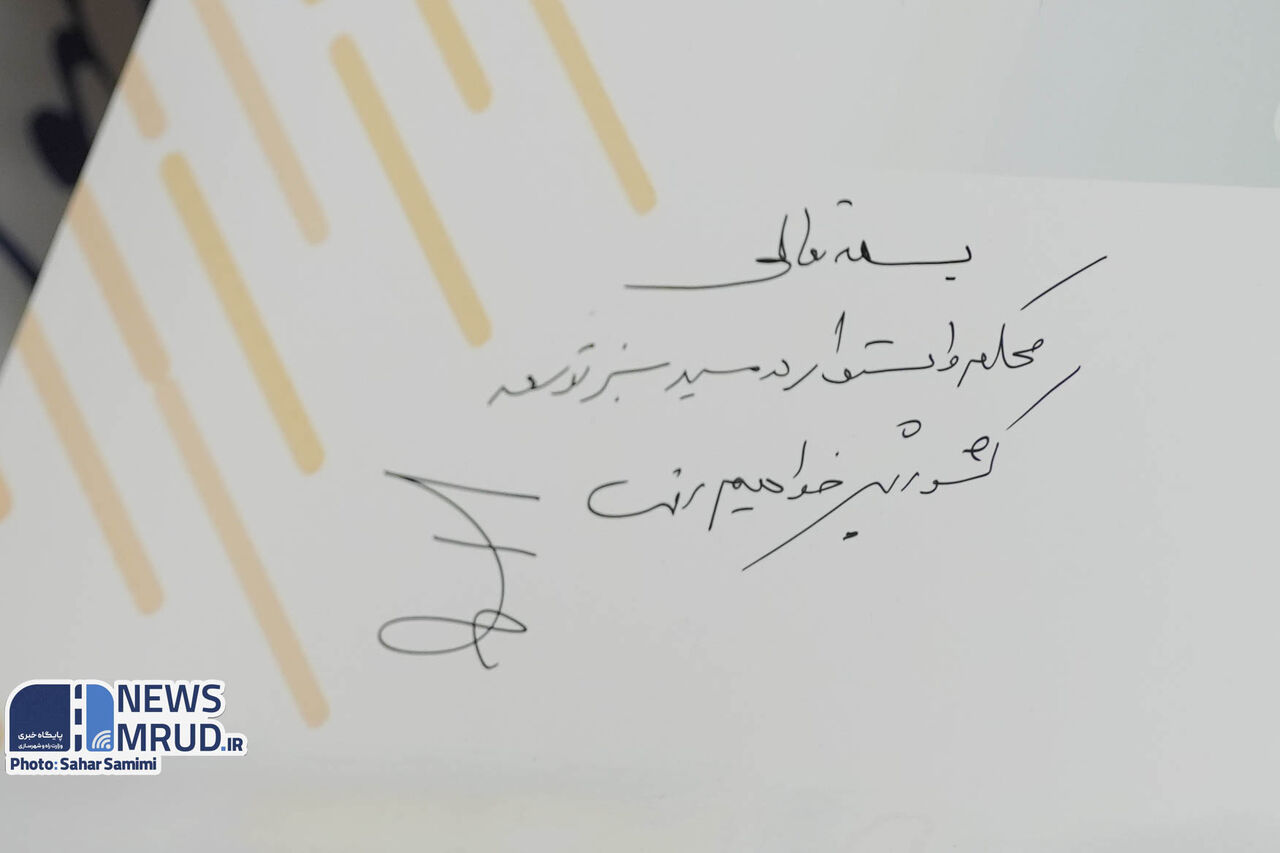 بسمه تعالی
محکم و استوار در مسیر سبز توسعه
کشور پیش خواهیم رفت
پایگاه خبری
وزارت راه و شهرسازی
NEWS
MRUD.IR
Photo: Sahar Samimi